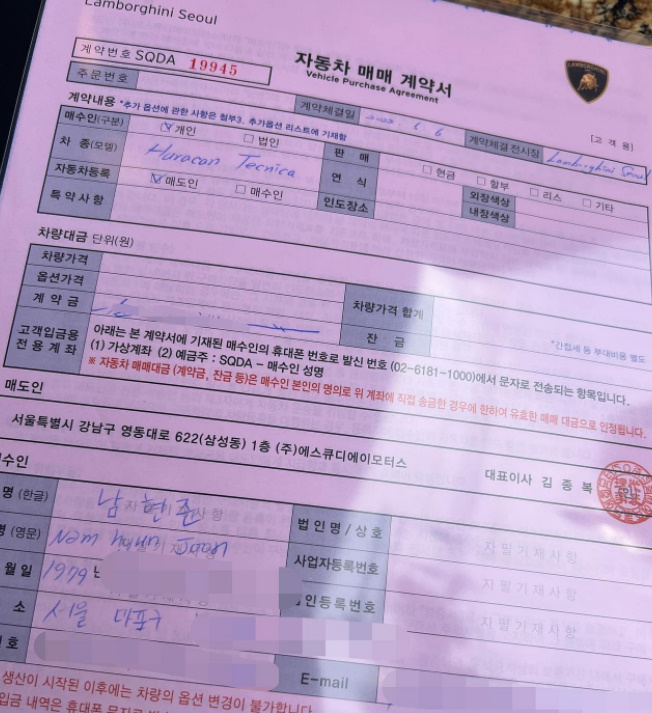 Lamborghini Seoul
계약번호 SQDA 19945
자동차 매매 계약서
Vehicle Purchase Agreement
LAMBORGHINI
주문번호
계약체결일
계약체결 전시장 Lamborghini Seoul
[고객용]
계약내용 *추가 옵션에 관한 사항은 첨부3. 추가옵션 리스트에 기재함
매수인(구분) ☑개인 □법인 판 매 □현금 □할부 □리스 □기타
차 종(모델) Huracan Tecnica 연 식 외장색상
자동차등록 ☑매도인 □매수인 인도장소 내장색상
특약사항
차량대금 단위(원)
차량가격
옵션가격 차량가격 합계
계약금 잔 금
*간접세 등 부대비용 별도
고객입금용 전용계좌
아래는 본 계약서에 기재된 매수인의 휴대폰 번호로 발신 번호 (02-6181-1000)에서 문자로 전송되는 항목입니다.
(1) 가상계좌 (2) 예금주 : SQDA - 매수인 성명
※ 자동차 매매대금 (계약금, 잔금 등)은 매수인 본인의 명의로 위 계좌에 직접 송금한 경우에 한하여 유효한 매매 대금으로 인정됩니다.
매도인
서울특별시 강남구 영동대로 622(삼성동) 1층 (주)에스큐디에이모터스 대표이사 김 종 복
수인
명 (한글) 남현준 법인명/상호 자필기재사항
명 (영문) Nam hyun Joon 사업자등록번호 자필기재사항
월일 1979년 인등록번호 자필기재사항
소 서울 마포구
호 E-mail
생산이 시작된 이후에는 차량의 옵션 변경이 불가합니다.
입금 내역은 휴대폰 문자로